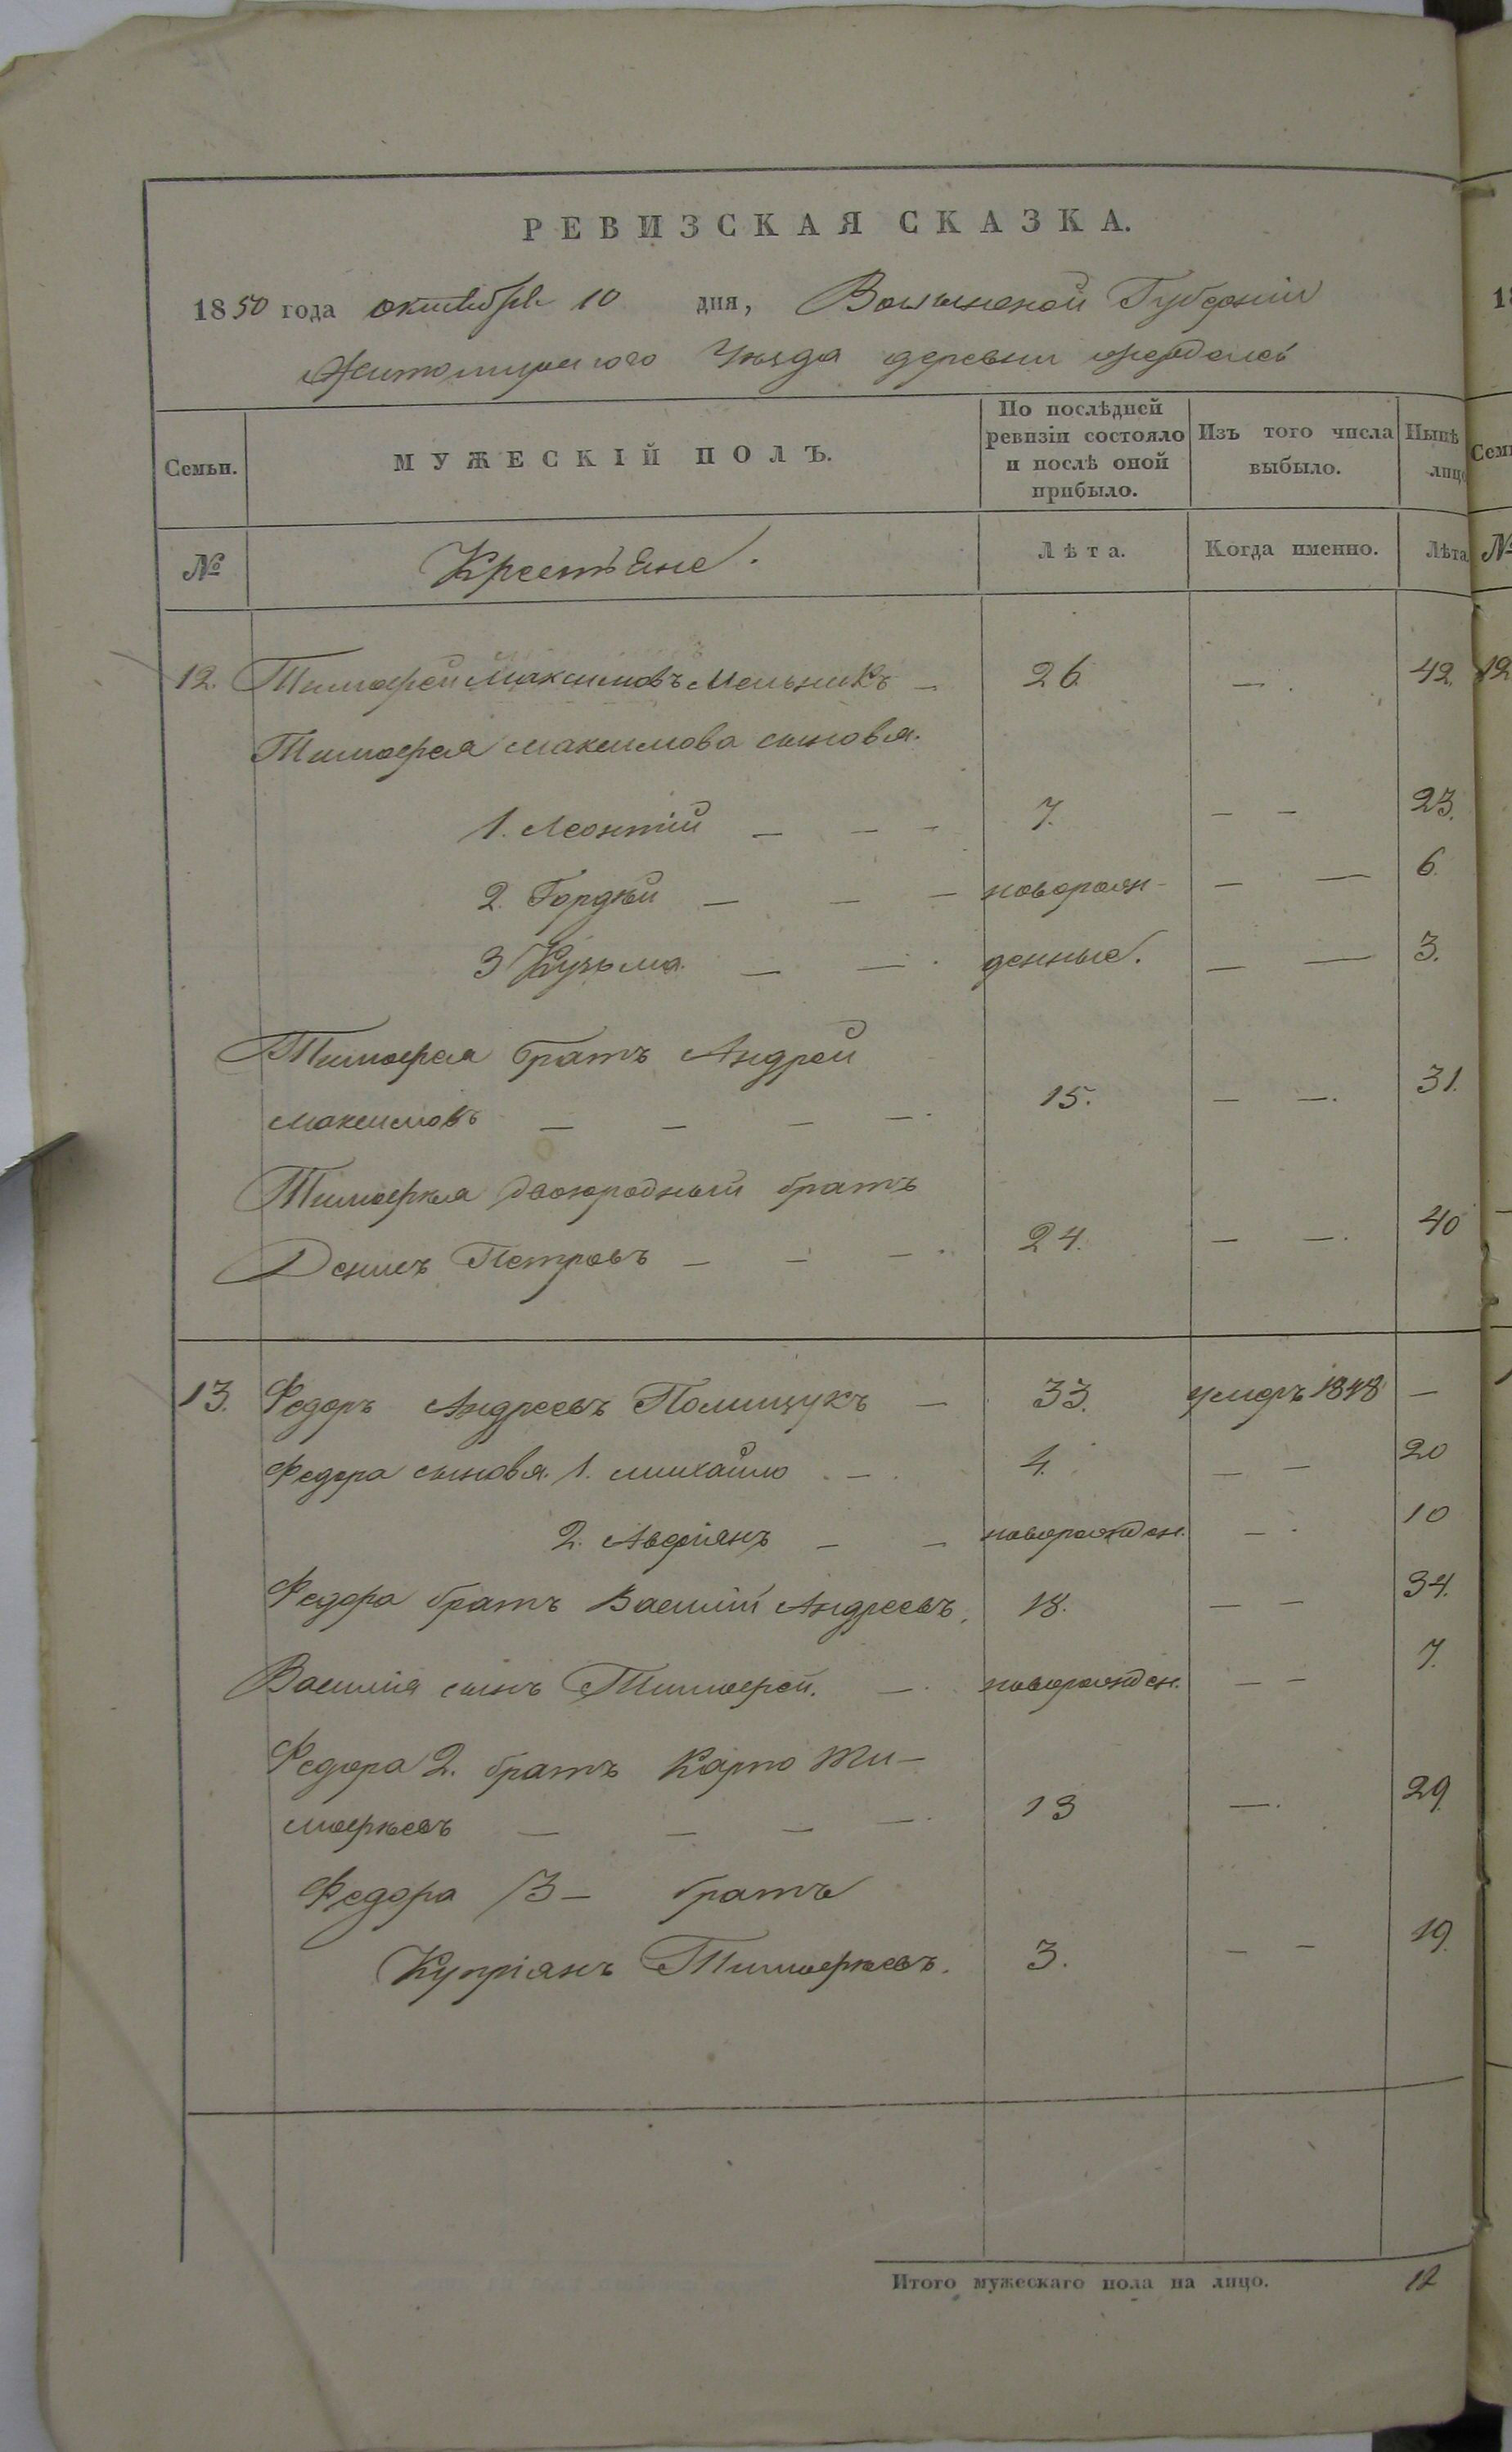 РЕВИЗСКАЯ СКАЗКА.
1850 года октября 10 дня, Волынской Губерніи
Житомирского Уѣзда деревни
Семьи. МУЖЕСКІЙ ПОЛЪ. По послѣдней ревизіи состояло и послѣ оной прибыло. Изъ того числа выбыло. Нынѣ лицо
№ Крестьяне. Лѣта. Когда именно. Лѣта
12. Тимофей Максимовъ Мельникъ — 26 — . 42.
Тимофея Максимова сыновья.
1. Леонтій — — — 7. — — 23.
2. Гордѣй — — — новорож- — — 6.
3 Кузьма. — — . денные. — — 3.
Тимофея братъ Андрей
Максимовъ — — — — . 15. — —. 31.
Тимофѣя двоюродный братъ
Денисъ Петровъ — — — . 24. — —. 40
13. Федоръ Андреевъ Полищукъ — 33. умеръ 1848 —
Федора сыновья. 1. Михайло . — . 4. — — 20
2. — — новорожден. — . 10
Федора братъ Василій Андреевъ. 18. — — 34.
Василія сынъ Тимофей. — . новорожден. — — 7.
Федора 2. братъ Карпо Ти—
мофѣевъ — — — — . 13 —. 29.
Федора 3 — братъ
Купріянъ Тимофѣевъ. 3. — — 19.
Итого мужескаго пола на лицо. 12